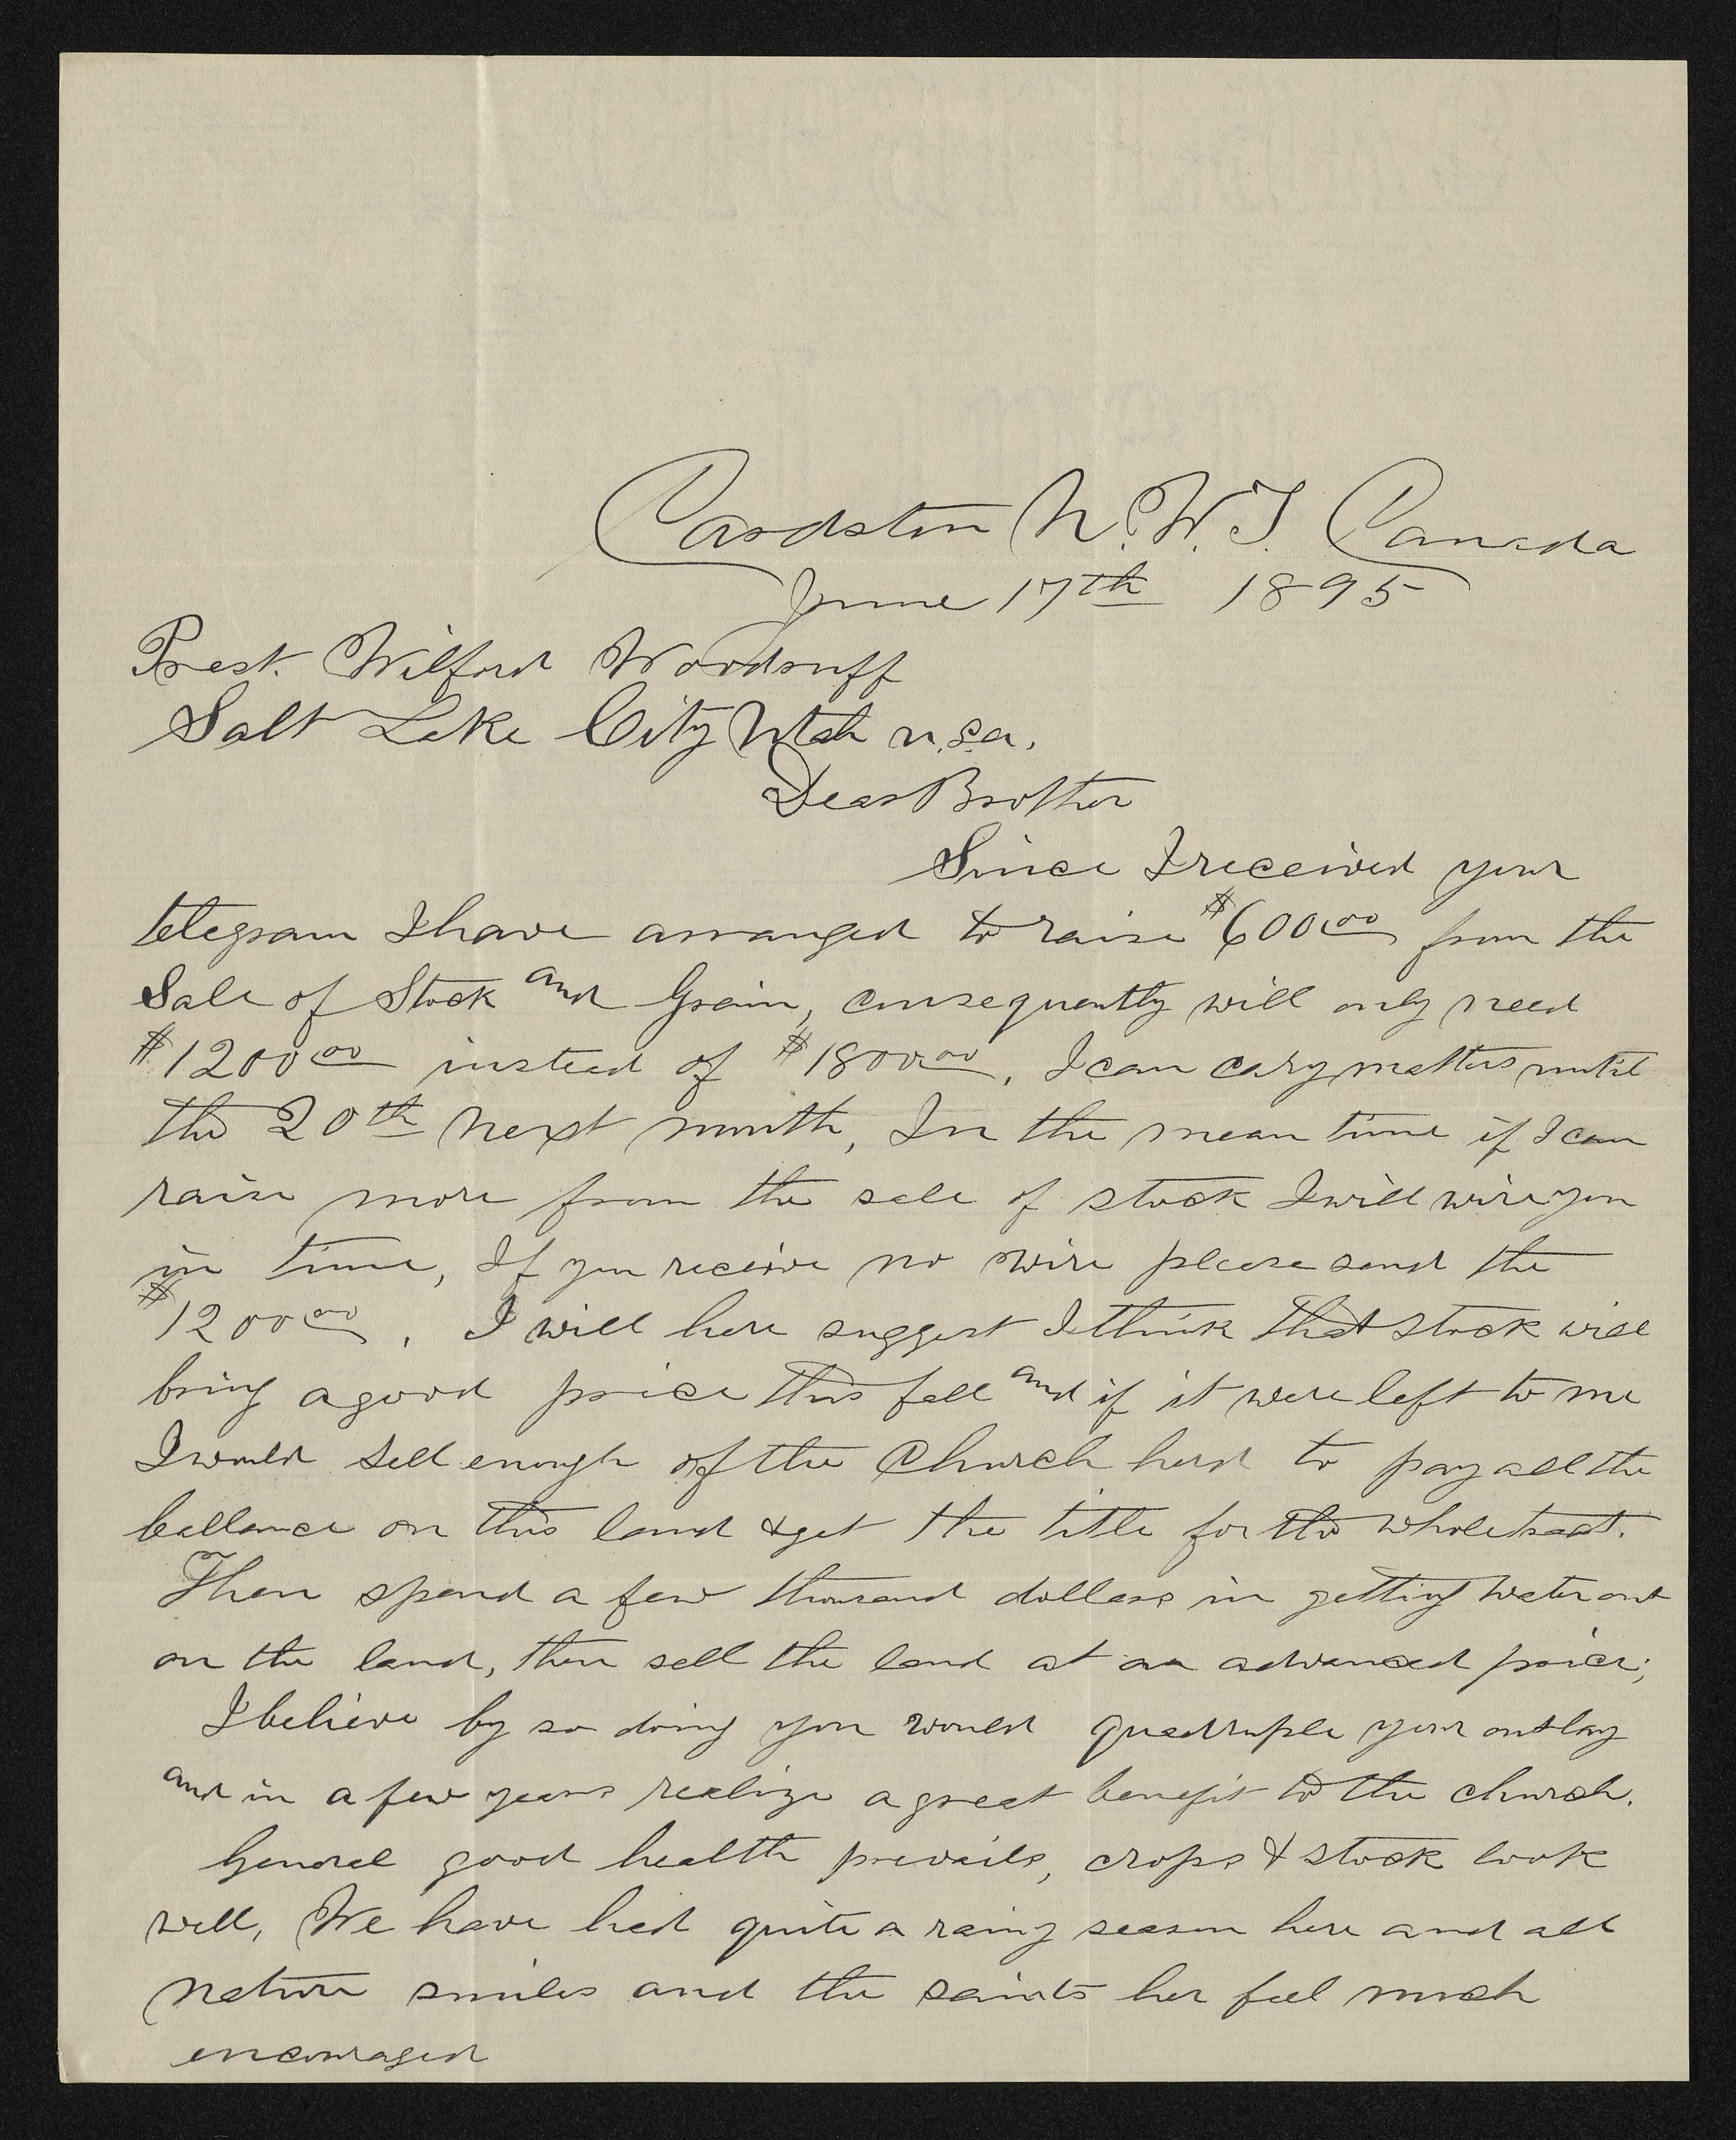 Cardston N.W.T. Canada
June 17th 1895
Prest. Wilford Woodruff
Salt Lake City Utah U.S.A.
Dear Brother
Since I received your
telegram I have arranged to raise $600.00 from the
Sale of Stock and Grain, consequently will only need
$1200.00 instead of $1800.00, I can cary matters until
the 20th next month, In the mean time if I can
raise more from the sale of stock I will wire you
in time, If you receive no wire please send the
$1200.00. I will here suggest I think that stock will
bring a good price this fall and if it were left to me
I would sell enough of the Church herd to pay all the
ballance on this land & get the title for the whole tract.
Then spend a few thousand dollars in getting water out
on the land, then sell the land at an advanced price;
I believe by so doing you would quadruple your outlay
and in a few years realize a great benefit to the church.
General good health prevails, crops & stock look
well, We have had quite a rainy season here and all
nature smiles and the saints her feel much
encouraged